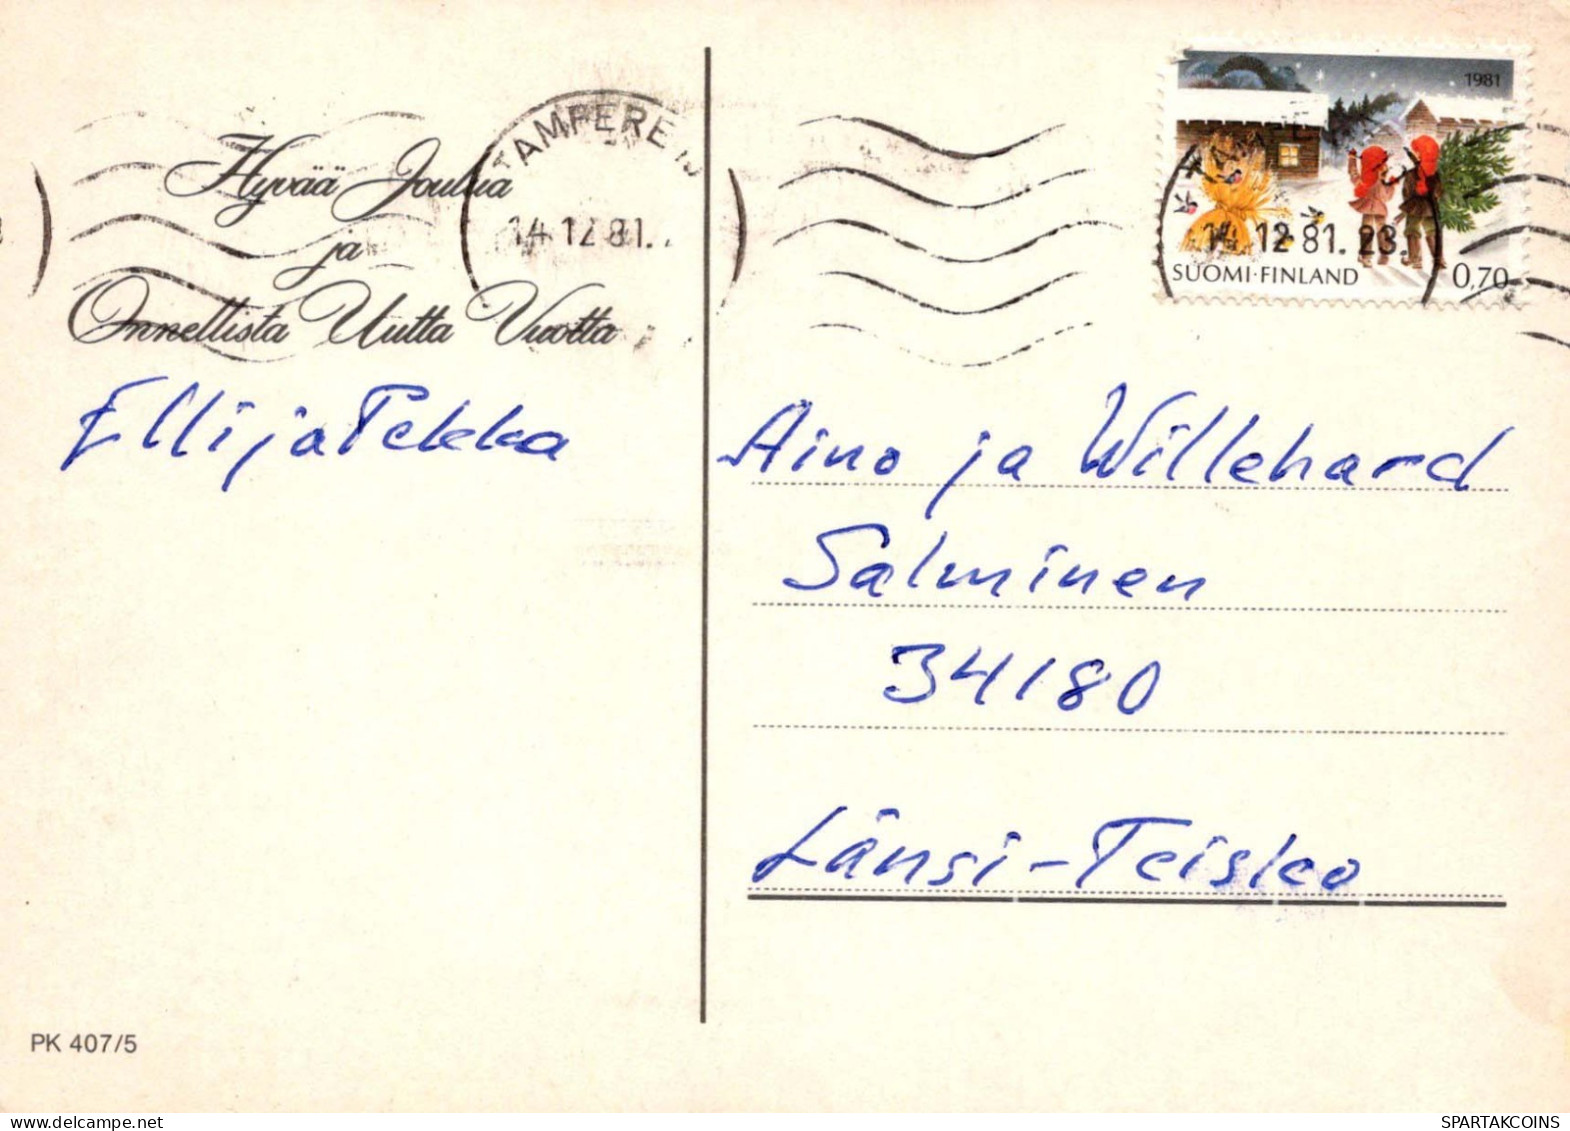 Hyvää Joulua
ja
Onnellista Uutta Vuotta
TAMPERE
14.12.81.
1981
14.12.81.23.
SUOMI·FINLAND
0,70
Elli ja Pekka
Aino ja Willehard
Salminen
34180
Länsi-Teisko
PK 407/5
delcampe.net
SPARTAKCOINS